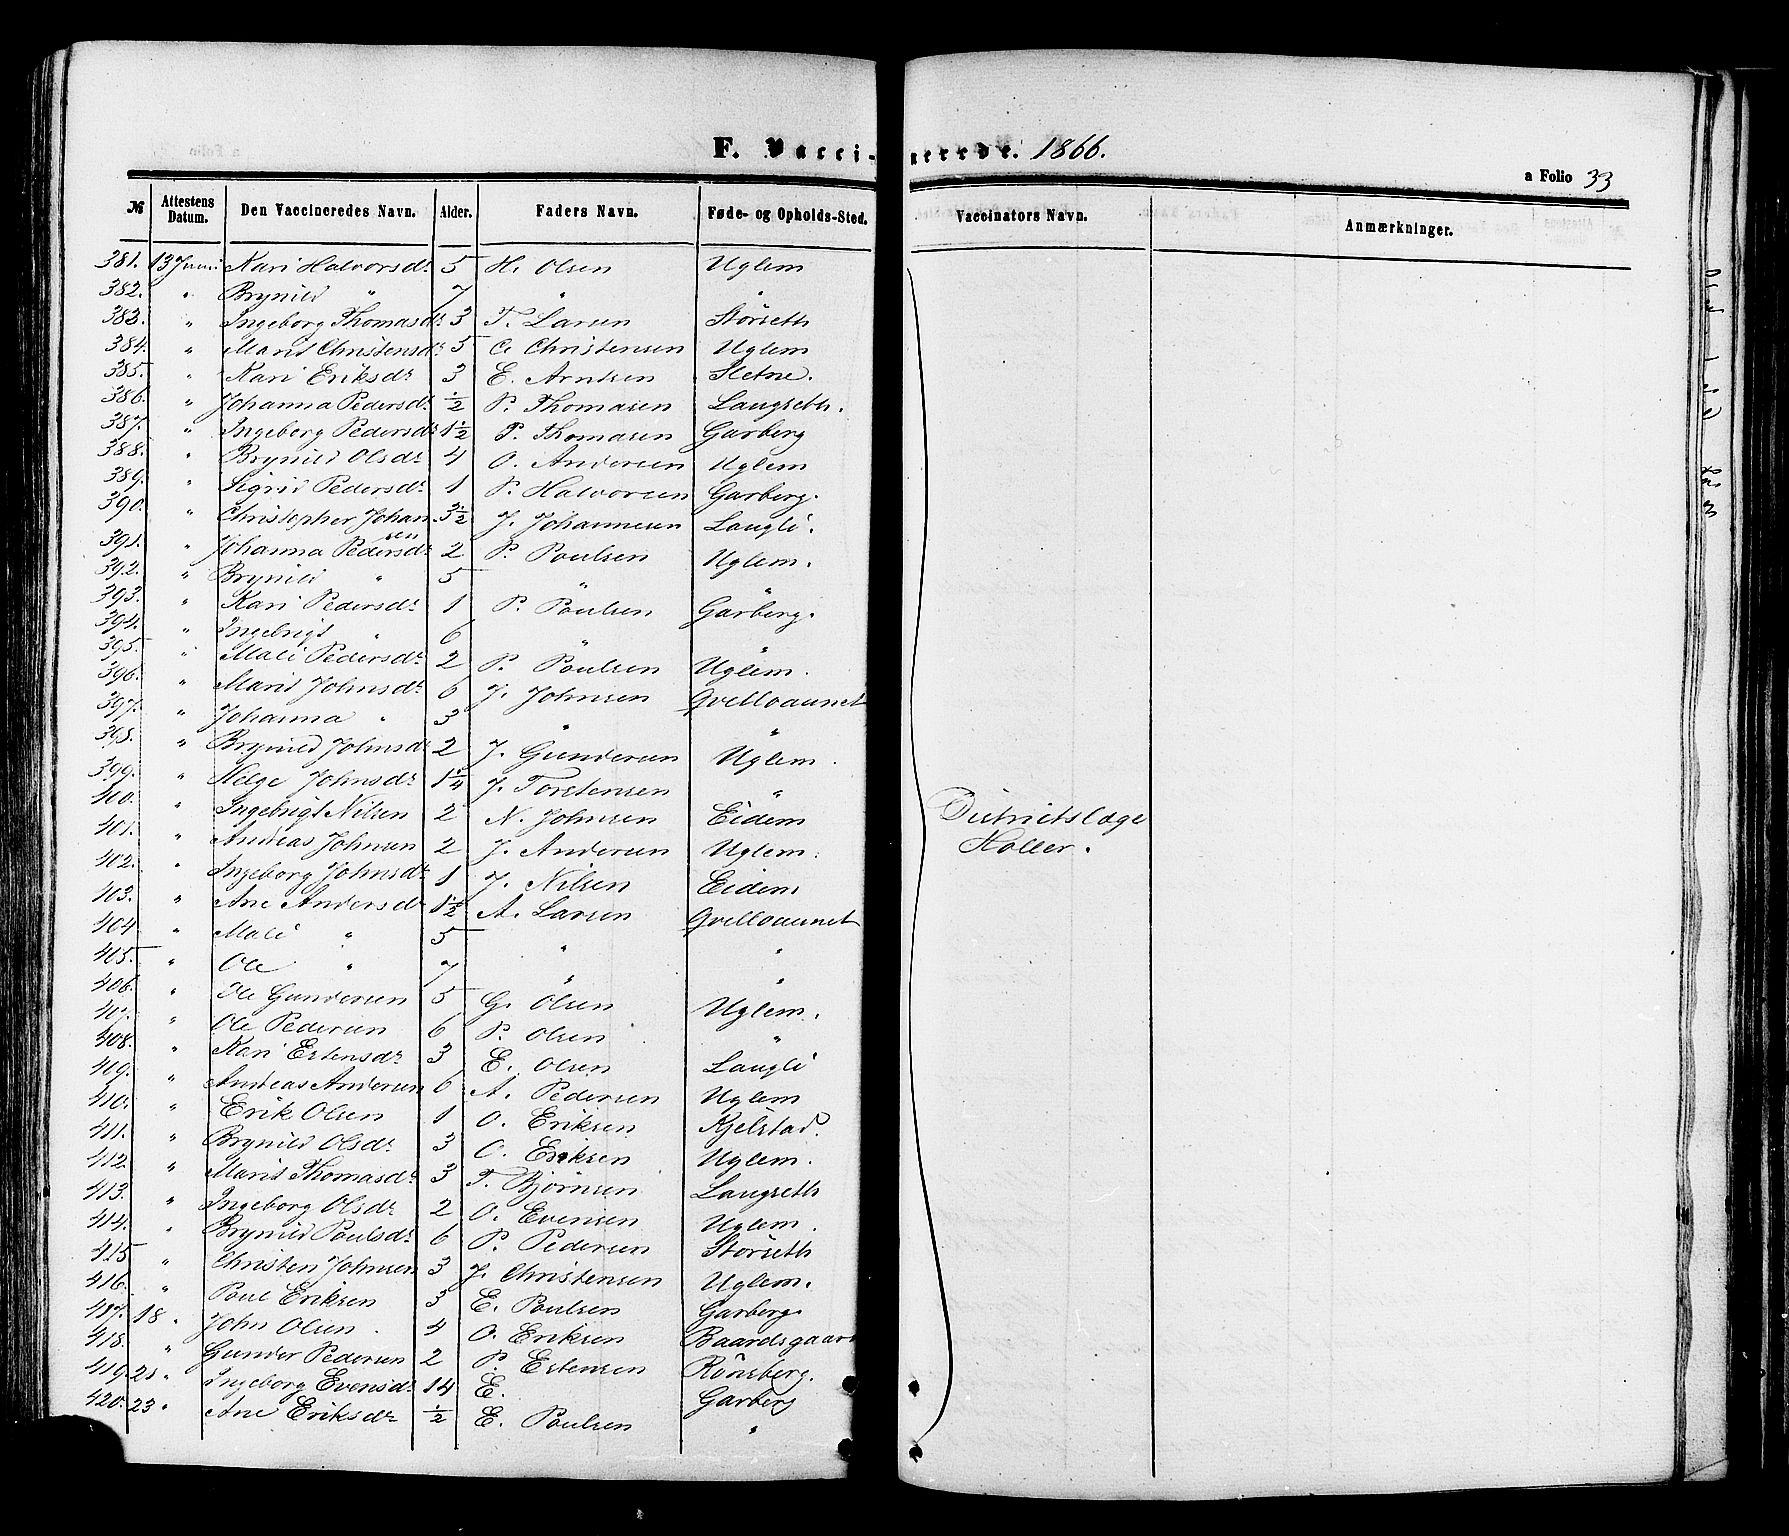 F. Vacci-nerede. 1866.
a Folio 33
№ Attestens Datum. Den Vaccineredes Navn. Alder. Faders Navn. Føde- og Opholds-Sted. Vaccinators Navn. Anmærkninger.
381. 13 Juni Kari Halvorsdr 5 H. Olsen Uglem
382. " Brynild " 7 " "
383. " Ingeborg Thomasdr 3 T. Larsen Störseth
384. " Marit Christensdr 5 C. Christensen Uglem
385. " Kari Eriksdr 3 E. Arntsen Sletne.
386. " Johanna Pedersdr ½ P. Thomasen Langseth.
387. " Ingeborg Pedersdr 1½ P. Thomasen Garberg
388. " Brynild Olsdr 4 O. Andersen Uglem
389. " Sigrid Pedersdr 1 P. Halvorsen Garberg.
390. " Christopher Johansen 3½ J. Johannesen Langli.
391. " Johanna Pedersdr 2 P. Poulsen Uglem.
392. " Brynild " 5 " "
393. " Kari Pedersdr 1 P. Poulsen Garberg.
394. " Ingebrigt " 6 " "
395. " Mali Pedersdr 2 P. Poulsen Uglem.
396. " Marit Johnsdr 6 J. Johnsen Qvelloaunet
397. " Johanna " 3 " "
398. " Brynild Johnsdr 2 J. Gundersen Uglem.
399. " Helge Johnsdr 1¼ J. Torstensen "
400. " Ingebrigt Nilsen 2 N. Johnsen Eidem
401. " Andreas Johnsen 2 J. Andersen Uglem.
402. " Ingeborg Johnsdr 1 J. Nilsen Eidem
403. " Ane Andersdr 1½ A. Larsen Qvelloaunet
404 " Mali " 5 " "
405. " Ole " 7 " "
406. " Ole Gundersen 5 G. Olsen Uglem.
407. " Ole Pedersen 6 P. Olsen "
408. " Kari Estensdr 3 E. Olsen Langli
409. " Andreas Andersen 6 A. Pedersen Uglem
410. " Erik Olsen 1 O. Eriksen Kjelstad.
411. " Brynild Olsdr 3 O. Eriksen Uglem.
412. " Marit Thomasdr 3 T. Bjørnsen Langseth
413. " Ingeborg Olsdr 2 O. Evensen Uglem.
414. " Brynild Poulsdr 6 P. Pedersen Störseth
415 " Christen Johnsen 3 J. Christensen Uglem.
416. " Poul Eriksen 3 E. Poulsen Garberg
417. 18 " John Olsen 4 O. Eriksen Baardsgaard
418. " Gunder Pedersen 2 P. Estensen Rönsberg.
419. 21 " Ingeborg Evensdr 14 E. Garberg
420. 23 " Ane Eriksdr ½ E. Poulsen "
Districtslæge
Holler.